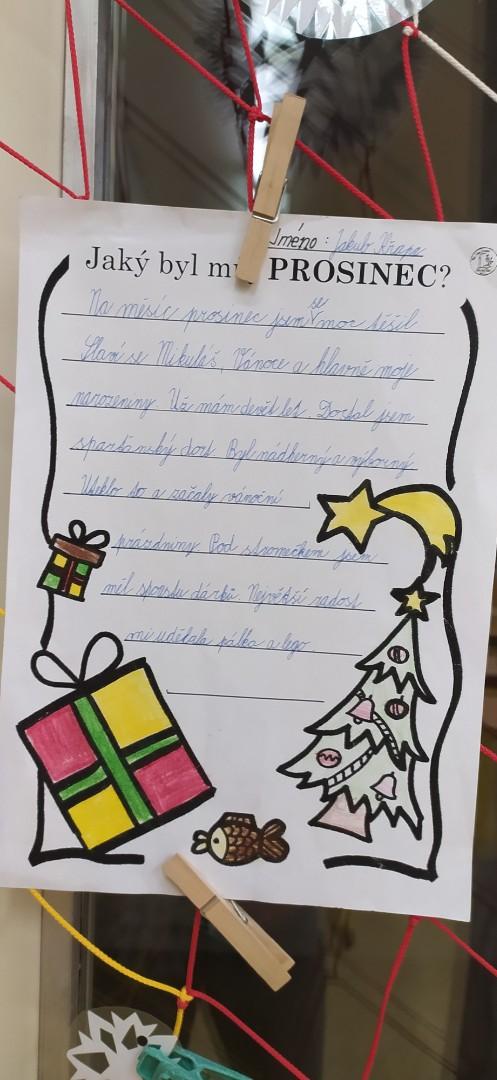 Jméno : Jakub
Jaký byl m PROSINEC?
Na měsíc prosinec jsem se moc těšil.
Slaví se Mikuláš, Vánoce a hlavně moje
narozeniny. Už mám devět let. Dostal jsem
sparťanský dort. Byl nádherný a výborný.
Uteklo to a začaly vánoční
prázdniny. Pod stromečkem jsem
měl spoustu dárků. Největší radost
mi udělala pálka a lego.